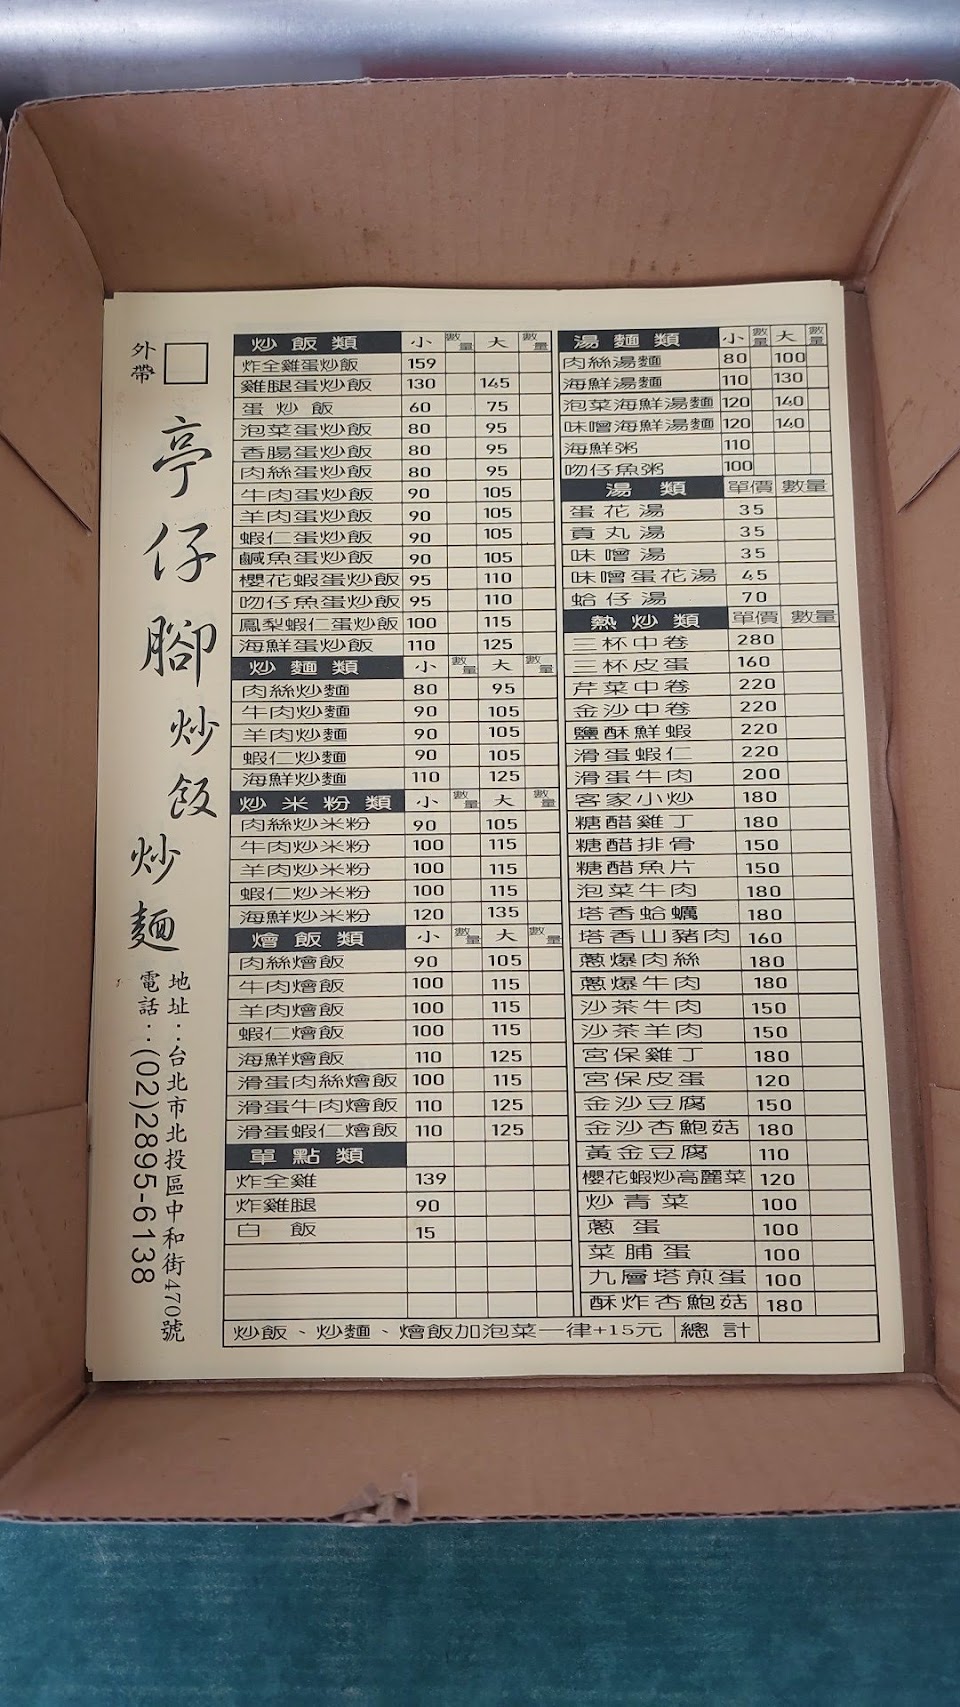 外帶
亭仔腳炒飯炒麵
地址：台北市北投區中和街470號
電話：(02)2895-6138
炒飯類 小 數量 大 數量
炸全雞蛋炒飯 159
雞腿蛋炒飯 130 145
蛋炒飯 60 75
泡菜蛋炒飯 80 95
香腸蛋炒飯 80 95
肉絲蛋炒飯 80 95
牛肉蛋炒飯 90 105
羊肉蛋炒飯 90 105
蝦仁蛋炒飯 90 105
鹹魚蛋炒飯 90 105
櫻花蝦蛋炒飯 95 110
吻仔魚蛋炒飯 95 110
鳳梨蝦仁蛋炒飯 100 115
海鮮蛋炒飯 110 125
炒麵類 小 數量 大 數量
肉絲炒麵 80 95
牛肉炒麵 90 105
羊肉炒麵 90 105
蝦仁炒麵 90 105
海鮮炒麵 110 125
炒米粉類 小 數量 大 數量
肉絲炒米粉 90 105
牛肉炒米粉 100 115
羊肉炒米粉 100 115
蝦仁炒米粉 100 115
海鮮炒米粉 120 135
燴飯類 小 數量 大 數量
肉絲燴飯 90 105
牛肉燴飯 100 115
羊肉燴飯 100 115
蝦仁燴飯 100 115
海鮮燴飯 110 125
滑蛋肉絲燴飯 100 115
滑蛋牛肉燴飯 110 125
滑蛋蝦仁燴飯 110 125
單點類
炸全雞 139
炸雞腿 90
白飯 15
湯麵類 小 數量 大 數量
肉絲湯麵 80 100
海鮮湯麵 110 130
泡菜海鮮湯麵 120 140
味噌海鮮湯麵 120 140
海鮮粥 110
吻仔魚粥 100
湯類 單價 數量
蛋花湯 35
貢丸湯 35
味噌湯 35
味噌蛋花湯 45
蛤仔湯 70
熱炒類 單價 數量
三杯中卷 280
三杯皮蛋 160
芹菜中卷 220
金沙中卷 220
鹽酥鮮蝦 220
滑蛋蝦仁 220
滑蛋牛肉 200
客家小炒 180
糖醋雞丁 180
糖醋排骨 150
糖醋魚片 150
泡菜牛肉 180
塔香蛤蠣 180
塔香山豬肉 160
蔥爆肉絲 180
蔥爆牛肉 180
沙茶牛肉 150
沙茶羊肉 150
宮保雞丁 180
宮保皮蛋 120
金沙豆腐 150
金沙杏鮑菇 180
黃金豆腐 110
櫻花蝦炒高麗菜 120
炒青菜 100
蔥蛋 100
菜脯蛋 100
九層塔煎蛋 100
酥炸杏鮑菇 180
炒飯、炒麵、燴飯加泡菜一律+15元 總計